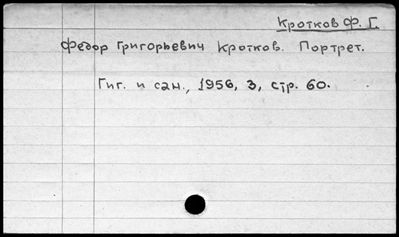 Кротков Ф. Г.
Федор Григорьевич Кротков. Портрет.
Гиг. и сан., 1956, 3, стр. 60.